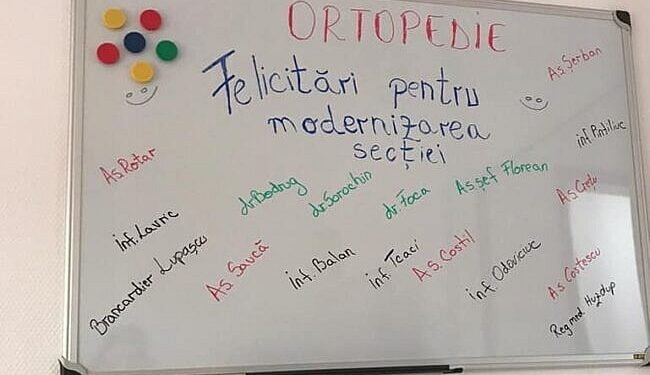 ORTOPEDIE
Felicitări pentru
modernizarea
secției
As. Șerban
inf. Pintiliuc
As Rotar
dr. Bodrug
dr. Sorochin
dr. Toca
As. șef Florean
As Crețu
Inf. Lavric
Brancardier Lupașcu
As. Saucă
Inf. Balan
Inf. Tcaci
As. Costil
inf. Odoviciuc
As. Costescu
Reg med Huzdup